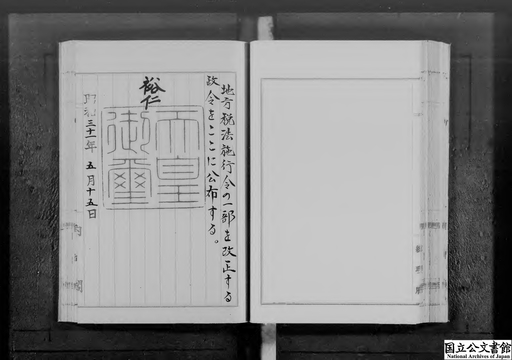 地方税法施行令の一部を改正する
政令をここに公布する。
裕仁
天皇
御璽
昭和三十一年五月十五日
内閣
国立公文書館
National Archives of Japan